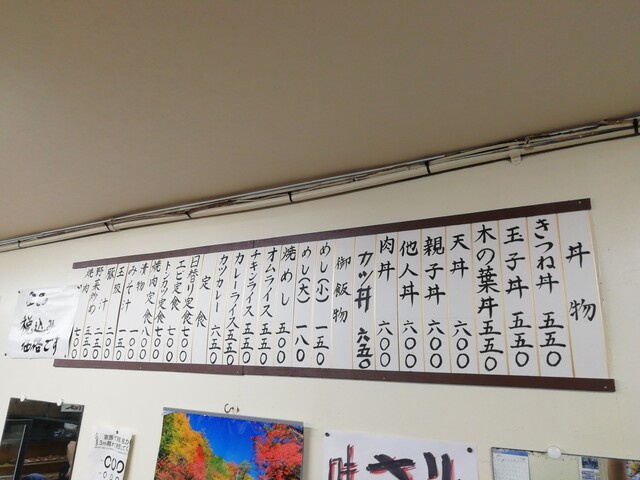 丼物
きつね丼 五五〇
玉子丼 五五〇
木の葉丼 五五〇
天丼 六〇〇
親子丼 六〇〇
他人丼 六〇〇
肉丼 六〇〇
カツ丼 六五〇
御飯物
めし(小) 一五〇
めし(大) 一八〇
焼めし 五〇〇
オムライス 五五〇
チキンライス 五五〇
カレーライス 五五〇
カツカレー 六五〇
定食
日替り定食 七〇〇
エビ定食 七〇〇
トンカツ定食 七〇〇
焼肉定食 八〇〇
青物 一〇〇
みそ汁 一〇〇
玉吸 一五〇
豚汁 二〇〇
野菜炒め 三五〇
税込み
価格です